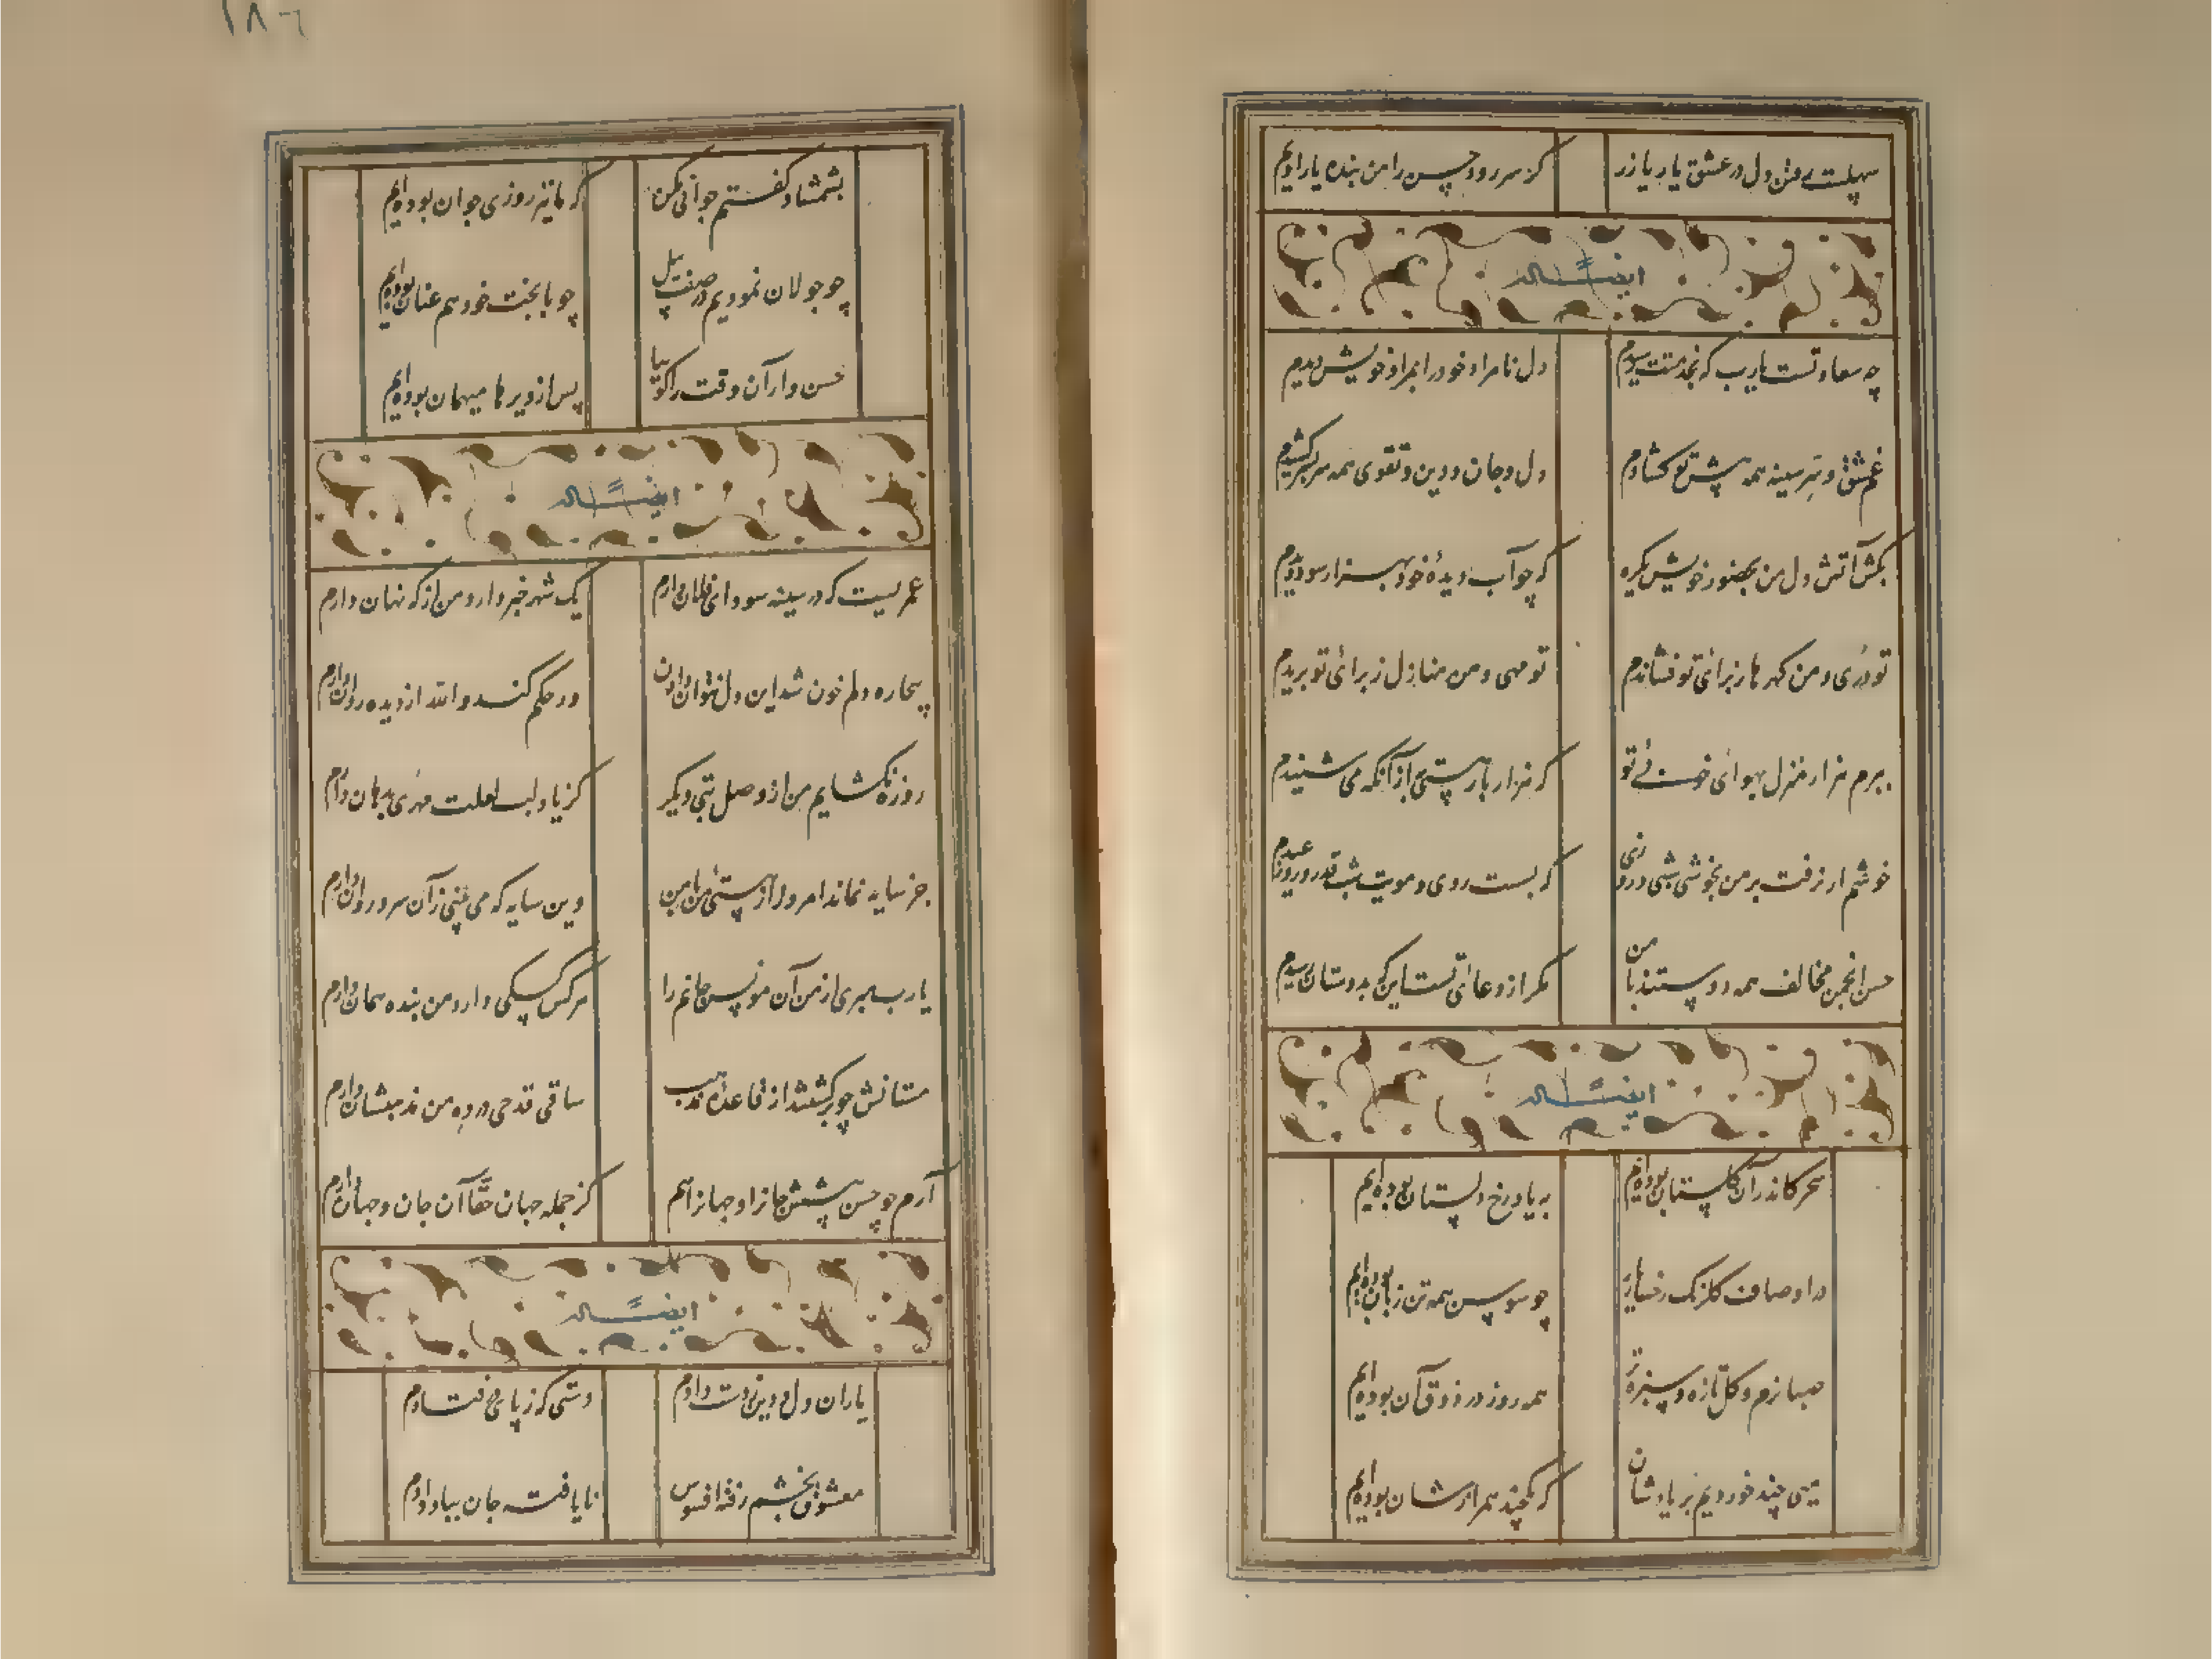 سهلست رفتن دل در عشق یار یا زر
گر سر رود حسن را من بنده یار دارم
ایضاً له
چه سعادتست یارب که بخدمتت رسیدم
دل نامراد خود را بمراد خویش دیدم
غم عشق و سر سینه همه پیش تو گشادم
دل و جان و دین و تقوی همه سر بسر کشیدم
بکش آتش دل من بحضور خویش یکره
که چو آب دیدهٔ خود بهزار سو دویدم
تو دری و من گهرها ز برای تو فشاندم
تو مهی و من منازل ز برای تو بریدم
ببرم هزار منزل بهوای خوی تو
که هزار بار هستی به از آنکه می شنیدم
خوشم ار نرفت بر من بخوشی شبی و روزی
که بست روی و مویت شب قدر و روز عیدم
حسن انجمن مخالف همه دوستند با من
مگر از دعای تست این که بدوستان رسیدم
ایضاً له
سحر کاندر آن گلستان بوده‌ایم
به یاد رخ دلستان بوده‌ایم
در اوصاف گلرنگ رخسار
چو سوسن همه تن زبان بوده‌ایم
صبا نرم و گل تازه و سبزه تر
همه روز در ذوق آن بوده‌ایم
میی چند خوردیم بر یادشان
که یکچند همرازشان بوده‌ایم
۱۸۶
بشمشاد گفتم جوانی مکن
که ما نیز روزی جوان بوده‌ایم
چو جولان نمودیم در صف پیل
چو با بخت خود هم عنان بوده‌ایم
حسن وار آن وقت را گو بیا
پس از دیرها میهمان بوده‌ایم
ایضاً له
عمریست که در سینه سودای فلان دارم
یک شهر خبر دارد من از که نهان دارم
بیچاره دلم خون شد این دل نتوان دادن
ور حکم کند والله از دیده روان دارم
روزه نگشایم من از وصل بتی دیگر
کز یاد لب لعلت مهری بدهان دارم
جز سایه نماند امروز از هستی من با من
وین سایه که می بینی ز آن سرو روان دارم
یارب نبری از من آن مونس جانم را
هر کس کسکی دارد من بنده همان دارم
مستانش چو برگشتند از قاعدهٔ مذهب
ساقی قدحی در ده من مذهبشان دارم
آرم چو حسن پیشش جانرا و جهانرا هم
کز جمله جهان حقا آن جان و جهان دارم
ایضاً له
یاران دل و دین ز دست دادم
دستی که ز پای در فتادم
معشوق بخشم رفته افسوس
نایافته جان بباد دادم